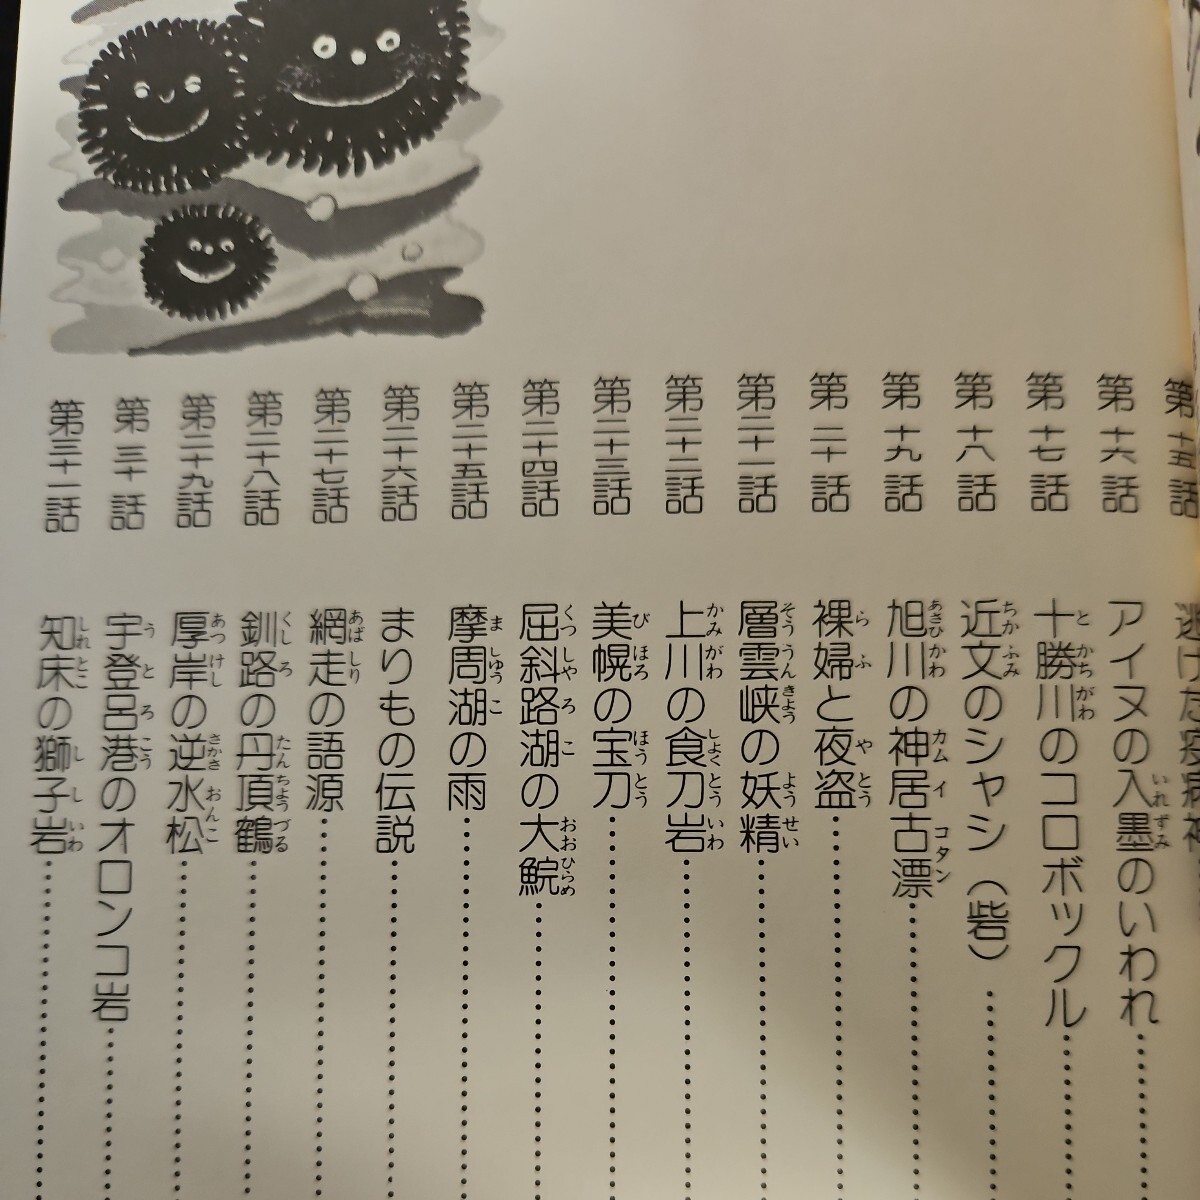 第十五話 逃げた疫病神
第十六話 アイヌの入墨のいわれ
第十七話 十勝川のコロボックル
第十八話 近文のシャシ（砦）
第十九話 旭川の神居古漂
第二十話 裸婦と夜盗
第二十一話 層雲峡の妖精
第二十二話 上川の食刀岩
第二十三話 美幌の宝刀
第二十四話 屈斜路湖の大鯇
第二十五話 摩周湖の雨
第二十六話 まりもの伝説
第二十七話 網走の語源
第二十八話 釧路の丹頂鶴
第二十九話 厚岸の逆水松
第三十話 宇登呂港のオロンコ岩
第三十一話 知床の獅子岩